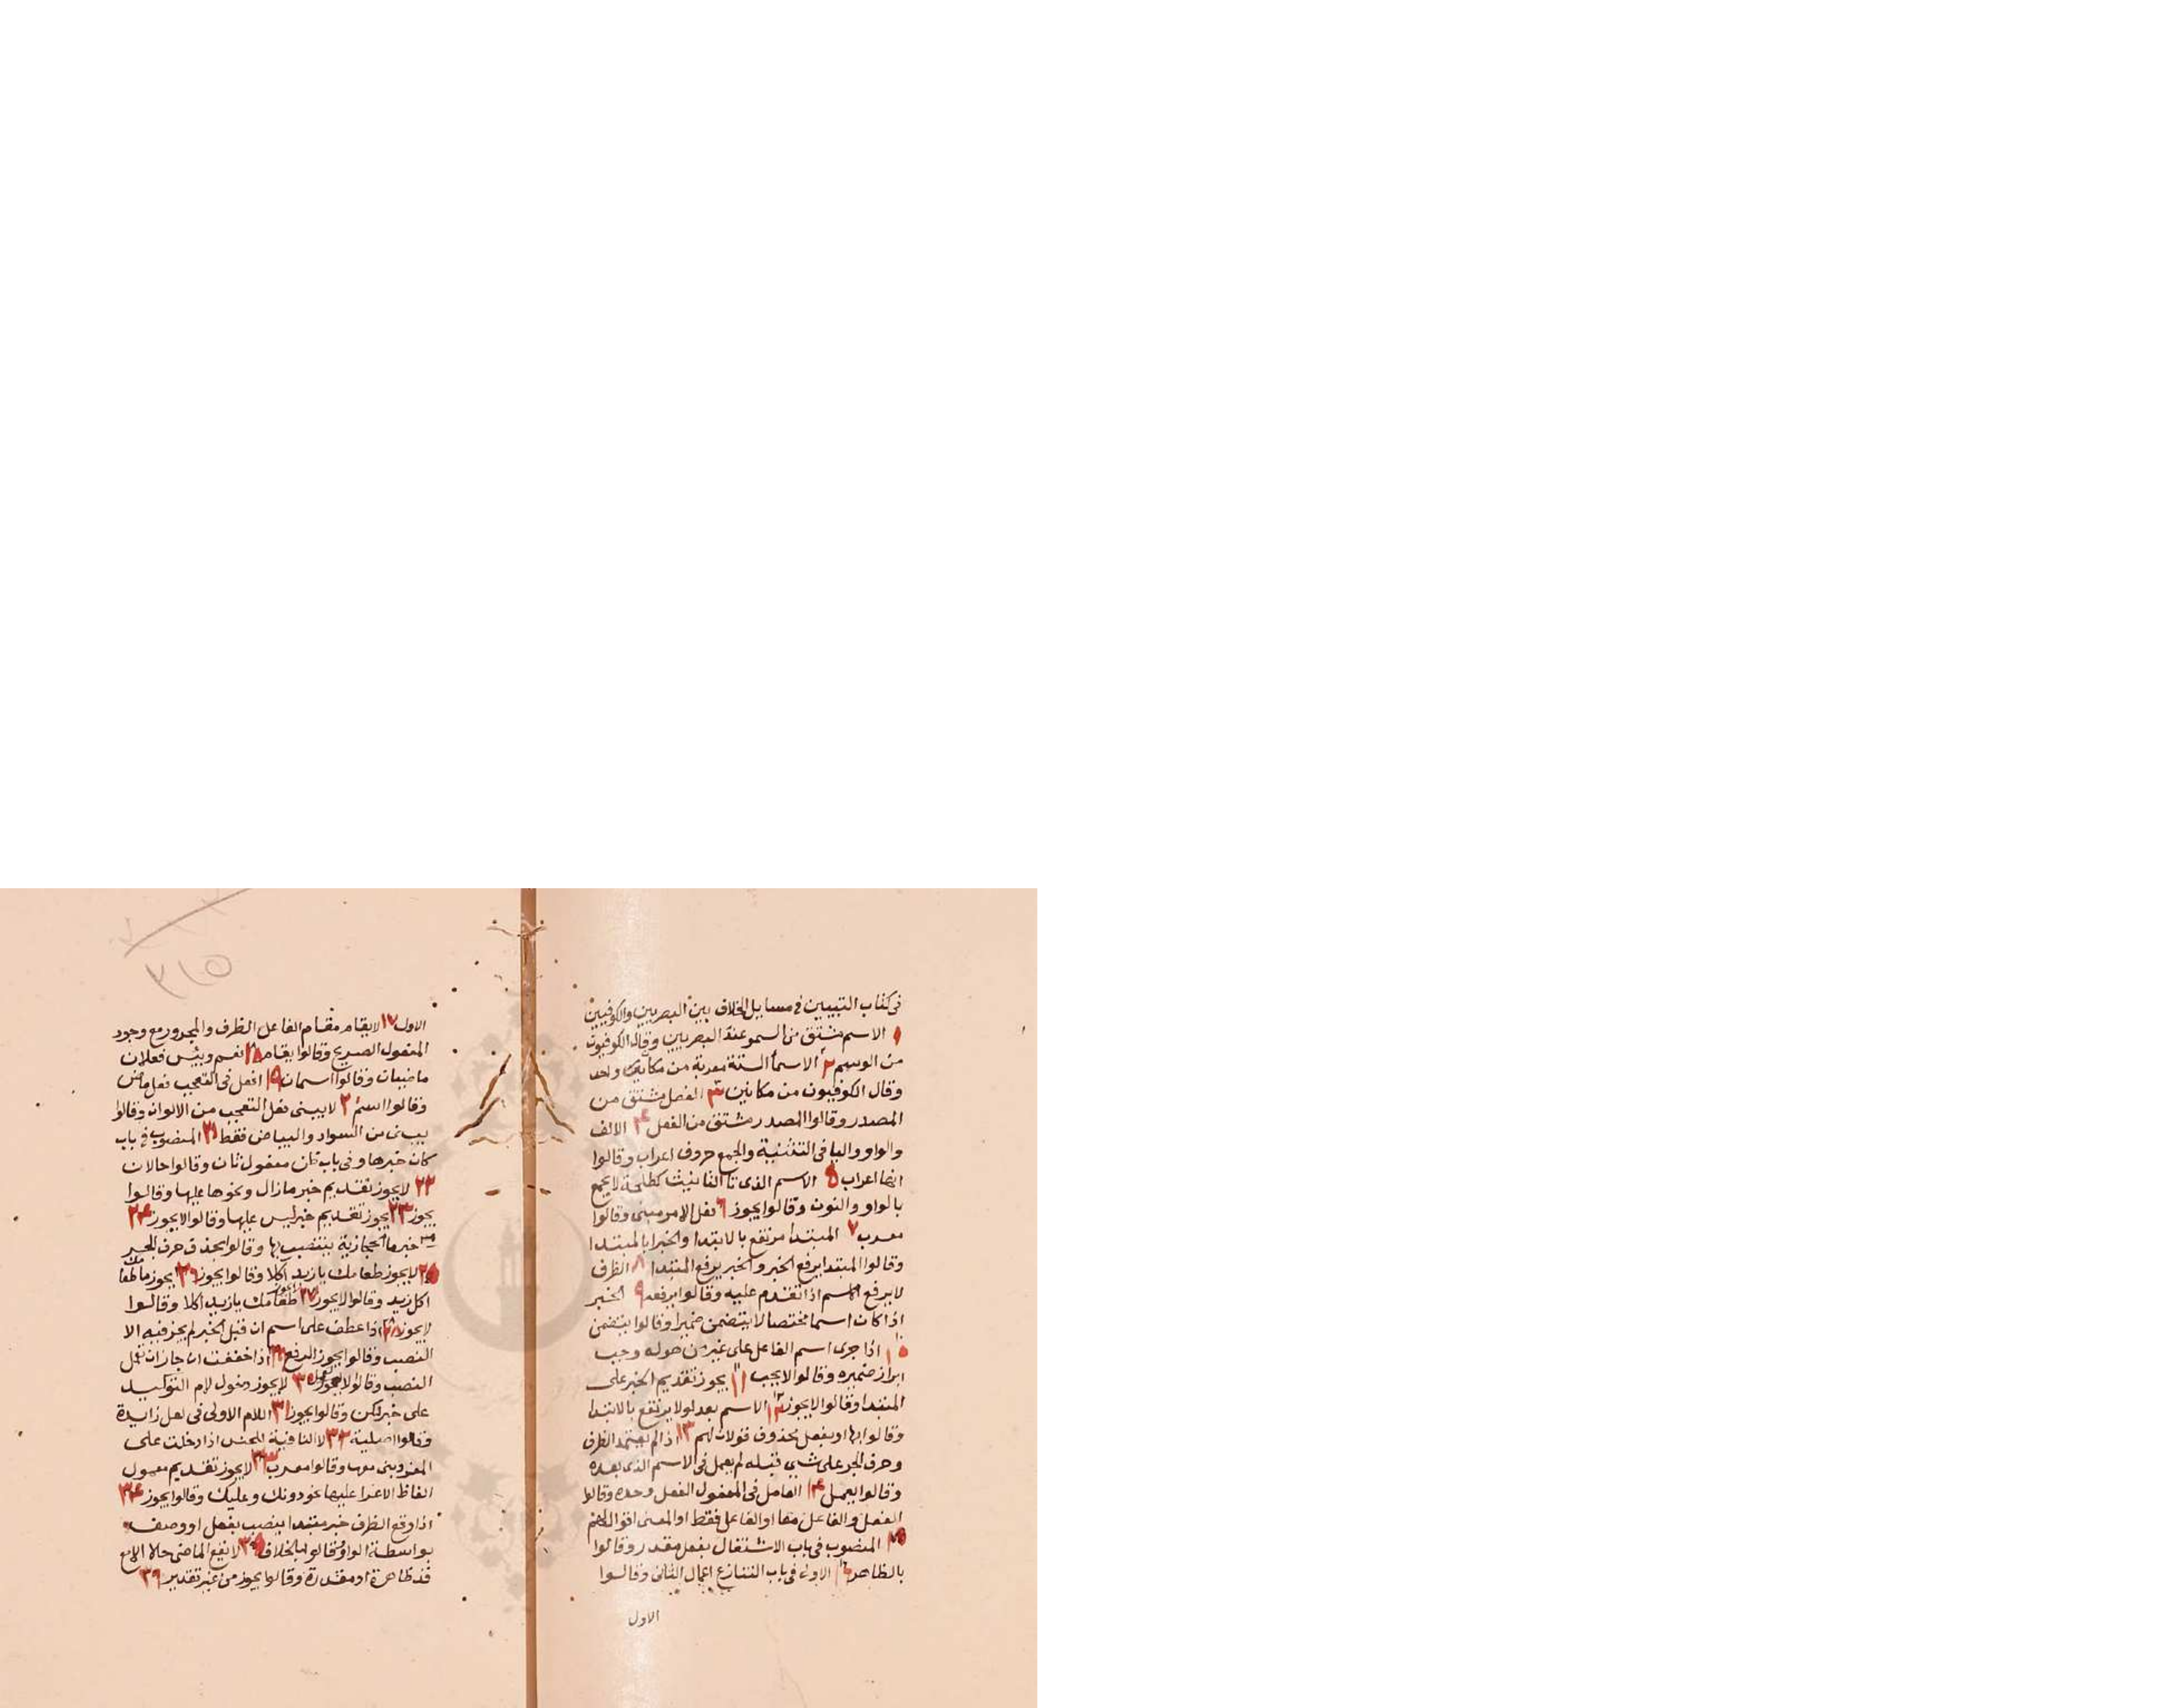 في كتاب التبيين في مسايل الخلاف بين البصريين والكوفيين
١ الاسم مشتق من السمو عند البصريين وقال الكوفيون
من الوسم ٢ الاسما الستة معربة من مكان واحد
وقال الكوفيون من مكانين ٣ الفعل مشتق من
المصدر وقالوا المصدر مشتق من الفعل ٤ الالف
والواو واليا في التثنية والجمع حروف اعراب وقالوا
انها اعراب ٥ الاسم الذي تا التانيث كطلحة لا يجمع
بالواو والنون وقالوا يجوز ٦ فعل الامر مبني وقالوا
معرب ٧ المبتدا مرتفع بالابتدا والخبر بالمبتدا
وقالوا المبتدا يرفع الخبر والخبر يرفع المبتدا ٨ الظرف
لا يرفع الاسم اذا تقدم عليه وقالوا يرفعه ٩ الخبر
اذا كان اسما مختصا لا يتضمن ضميرا وقالوا يتضمن
١٠ اذا جرى اسم الفاعل على غير من هو له وجب
ابراز ضميره وقالوا لا يجب ١١ يجوز تقديم الخبر على
المبتدا وقالوا لا يجوز ١٢ الاسم بعد لولا يرتفع بالابتدا
وقالوا بها او بفعل محذوف قولان لهم ١٣ اذا لم يعتمد الظرف
وحرف الجر على شيى قبله لم يعمل في الاسم الذي بعده
وقالوا يعمل ١٤ العامل في المفعول الفعل وحده وقالوا
الفعل والفاعل معا او الفاعل فقط او المعنى اقوال لهم
١٥ المنصوب في باب الاشتغال بفعل مقدر وقالوا
بالظاهر ١٦ الاولى في باب التنازع اعمال الثاني وقالوا
الاول
٣١٥
الاول ١٧ لا يقام مقام الفاعل الظرف والمجرور مع وجود
المفعول الصريح وقالوا يقام ١٨ نعم وبئس فعلان
ماضيان وقالوا اسمان ١٩ افعل في التعجب فعل ماض
وقالوا اسم ٢٠ لا يبنى فعل التعجب من الالوان وقالوا
يبنى من السواد والبياض فقط ٢١ المنصوب في باب
كان خبرها وفي باب ظن مفعول ثان وقالوا حالان
٢٢ لا يجوز تقديم خبر مازال ونحوها عليها وقالوا
يجوز ٢٣ يجوز تقديم خبر ليس عليها وقالوا لا يجوز ٢٤
خبر ما الحجازية ينتصب بها وقالوا بحذف حرف الجر
٢٥ لا يجوز طعامك يا زيد آكلا وقالوا يجوز ٢٦ يجوز ما طعامك
اكل زيد وقالوا لا يجوز ٢٧ يجوز طعامك يا زيد اكلا وقالوا
لا يجوز ٢٨ اذا عطف على اسم ان قبل الخبر لم يجز فيه الا
النصب وقالوا يجوز الرفع ٢٩ اذا خففت ان جاز ان تعمل
النصب وقالوا لا يجوز ٣٠ لا يجوز دخول لام التوكيد
على خبر لكن وقالوا يجوز ٣١ اللام الاولى في لعل زايدة
وقالوا اصلية ٣٢ لا النافية للجنس اذا دخلت على
المفرد بني معها وقالوا معرب ٣٣ لا يجوز تقديم معمول
الفاظ الاغرا عليها نحو دونك وعليك وقالوا يجوز ٣٤
اذا وقع الظرف خبر مبتدا ينصب بفعل او وصف
بواسطة الواو وقالوا بالخلاف ٣٥ لا يقع الماضي حالا الا مع
قد ظاهرة او مقدرة وقالوا يجوز من غير تقدير ٣٦